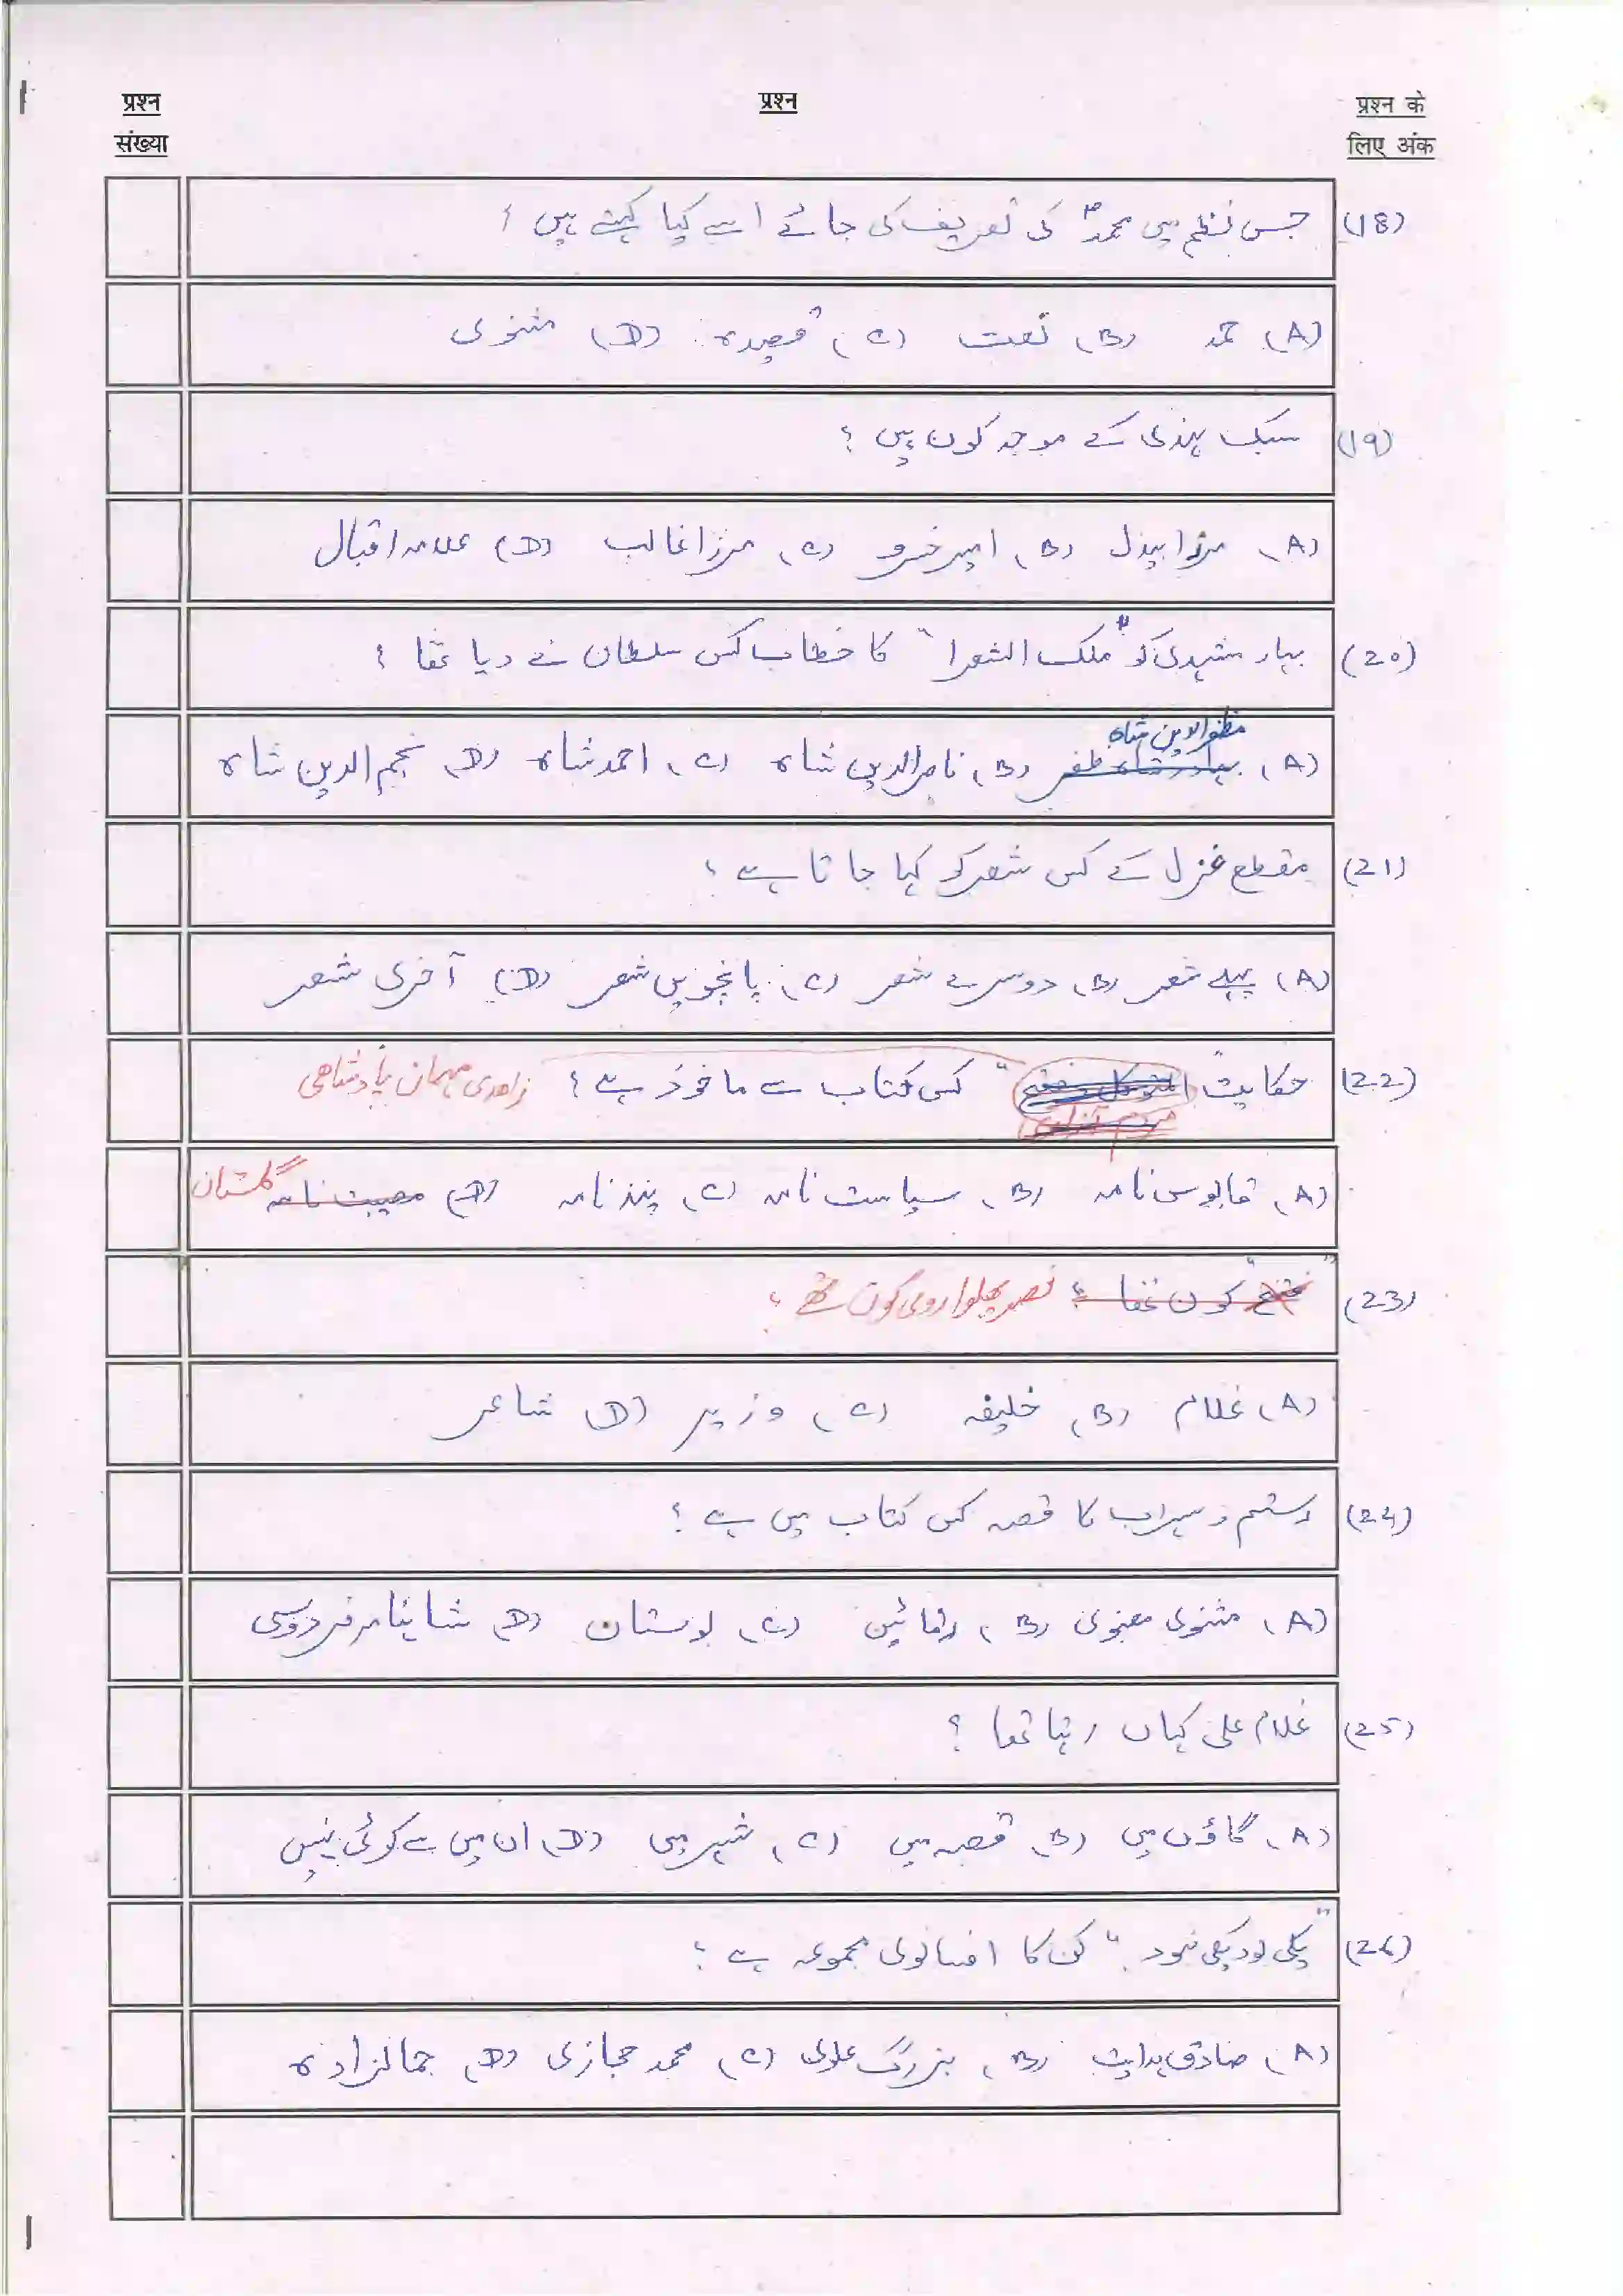 प्रश्न संख्या
प्रश्न
प्रश्न के लिए अंक
(18) جس نظم میں محمدؐ کی تعریف کی جائے اسے کیا کہتے ہیں ؟
(A) حمد (B) نعت (C) قصیدہ (D) مثنوی
(19) سبک ہندی کے موجد کون ہیں ؟
(A) مرزا بیدل (B) امیر خسرو (C) مرزا غالب (D) علامہ اقبال
(20) بہار مشہدی کو "ملک الشعرا" کا خطاب کس سلطان نے دیا تھا ؟
مظفرالدین شاہ
(A) بہادر شاہ ظفر (B) ناصرالدین شاہ (C) احمد شاہ (D) نجم الدین شاہ
(21) مقطع غزل کے کس شعر کو کہا جاتا ہے ؟
(A) پہلے شعر (B) دوسرے شعر (C) پانچویں شعر (D) آخری شعر
(22) حکایت " " کس کتاب سے ماخوذ ہے ؟ زاھدی مہمان پادشاھی
(A) قابوس نامہ (B) سیاست نامہ (C) پند نامہ (D) مصیبت نامہ گلستان
(23) "فتح" کون تھا ؟ نصر پھلواروی کون تھے ؟
(A) غلام (B) خلیفہ (C) وزیر (D) شاعر
(24) رستم و سہراب کا قصہ کس کتاب میں ہے ؟
(A) مثنوی معنوی (B) رامائین (C) بوستان (D) شاہنامہ فردوسی
(25) غلام علی کہاں رہتا تھا ؟
(A) گاؤں میں (B) قصبہ میں (C) شہر میں (D) ان میں سے کوئی نہیں
(26) "یکی بود یکی نبود" کن کا افسانوی مجموعہ ہے ؟
(A) صادق ہدایت (B) بزرگ علوی (C) محمد حجازی (D) جمالزادہ